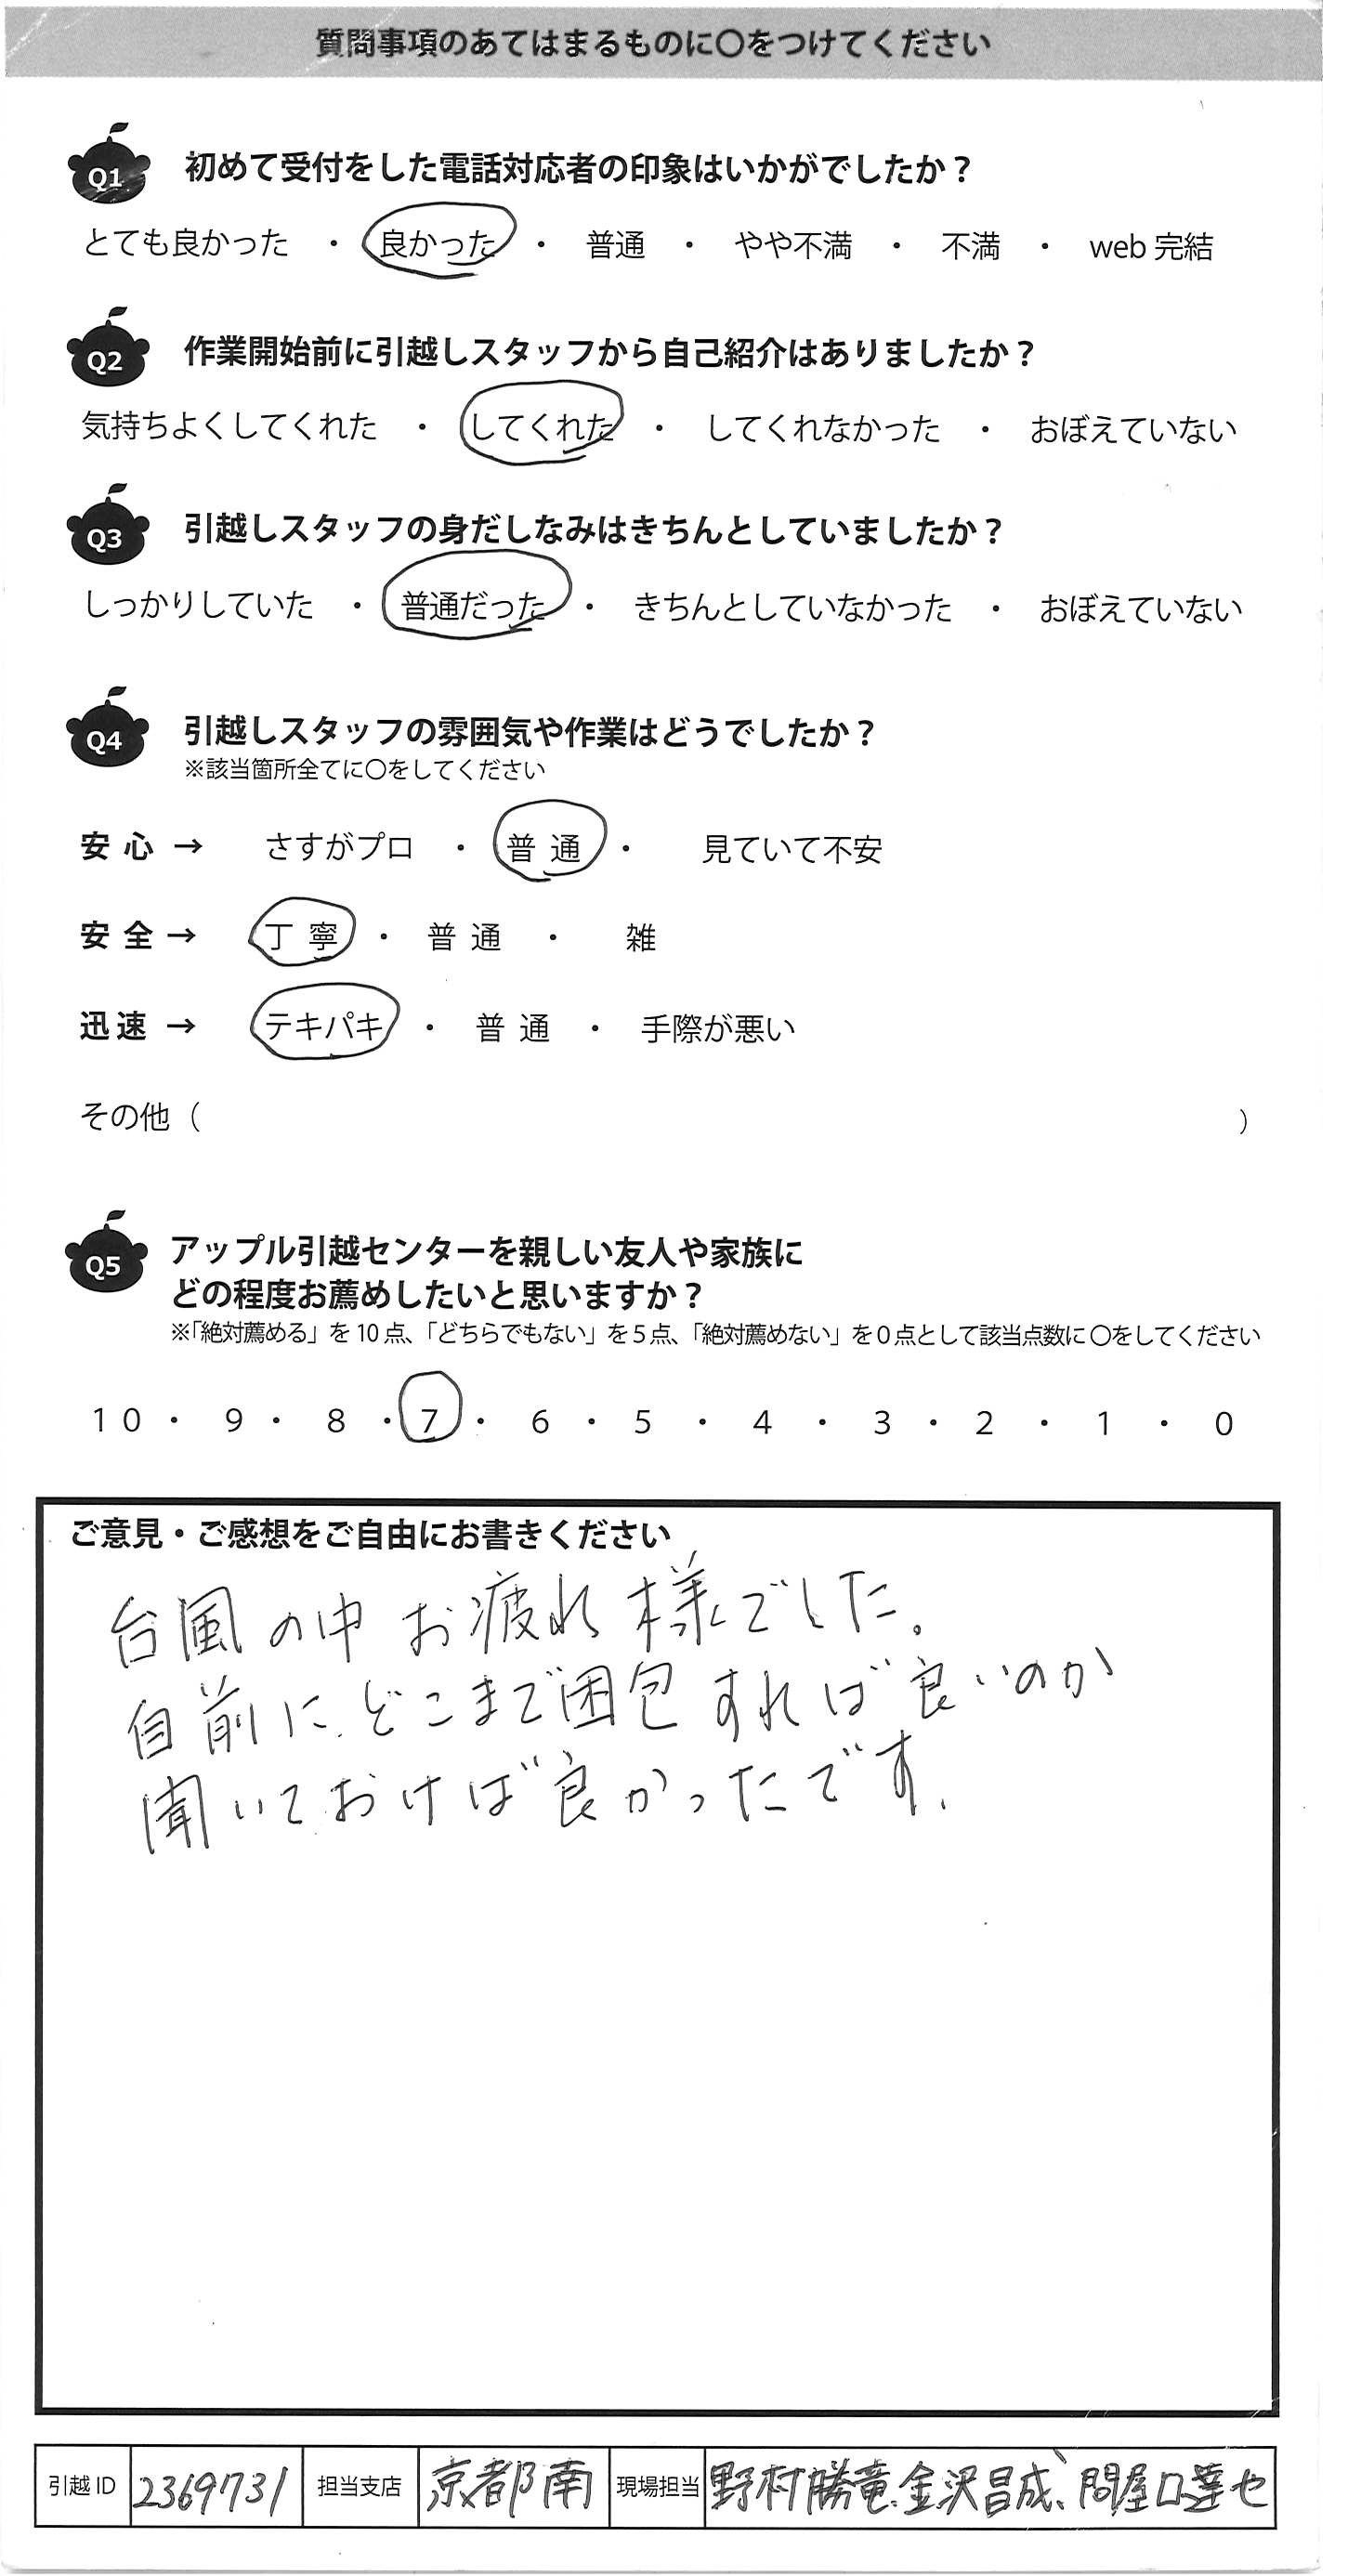 質問事項のあてはまるものに〇をつけてください
Q1 初めて受付をした電話対応者の印象はいかがでしたか？
とても良かった ・ 良かった ・ 普通 ・ やや不満 ・ 不満 ・ web 完結
Q2 作業開始前に引越しスタッフから自己紹介はありましたか？
気持ちよくしてくれた ・ してくれた ・ してくれなかった ・ おぼえていない
Q3 引越しスタッフの身だしなみはきちんとしていましたか？
しっかりしていた ・ 普通だった ・ きちんとしていなかった ・ おぼえていない
Q4 引越しスタッフの雰囲気や作業はどうでしたか？
※該当箇所全てに〇をしてください
安心 → さすがプロ ・ 普通 ・ 見ていて不安
安全 → 丁寧 ・ 普通 ・ 雑
迅速 → テキパキ ・ 普通 ・ 手際が悪い
その他（ ）
Q5 アップル引越センターを親しい友人や家族に
どの程度お薦めしたいと思いますか？
※「絶対薦める」を 10 点、「どちらでもない」を 5 点、「絶対薦めない」を 0 点として該当点数に 〇をしてください
10 ・ 9 ・ 8 ・ 7 ・ 6 ・ 5 ・ 4 ・ 3 ・ 2 ・ 1 ・ 0
ご意見・ご感想をご自由にお書きください
台風の中お疲れ様でした。
自前に、どこまで困包すれば良いのか
聞いておけば良かったです.
引越 ID 2369731 担当支店 京都南 現場担当 野村勝竜、金沢昌成、問屋口達也